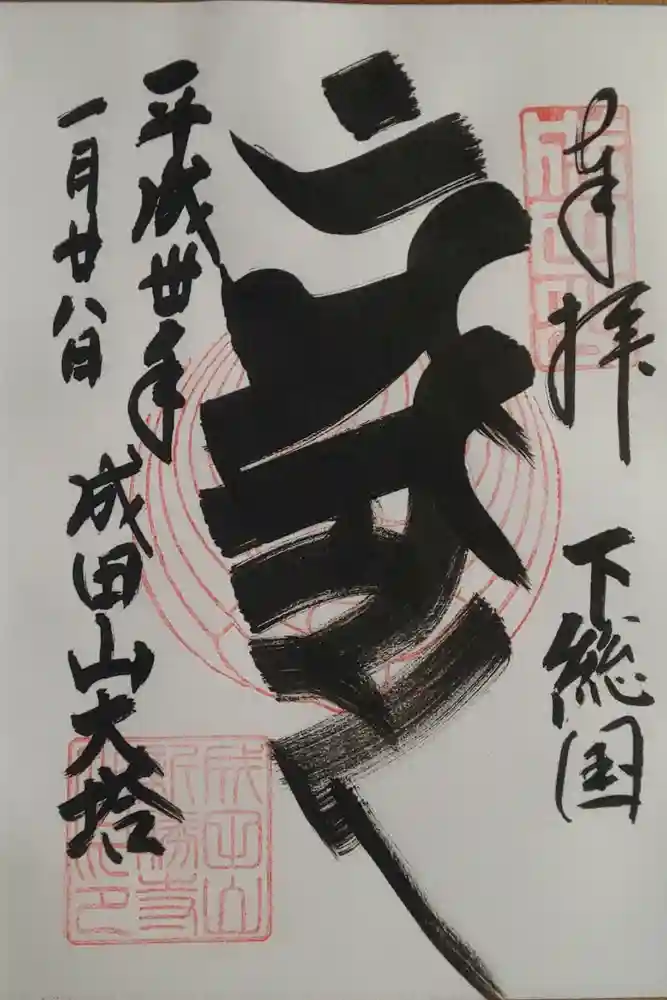 奉拝
下総国
平成丗年
一月廿八日
成田山大塔
成田山
新勝寺